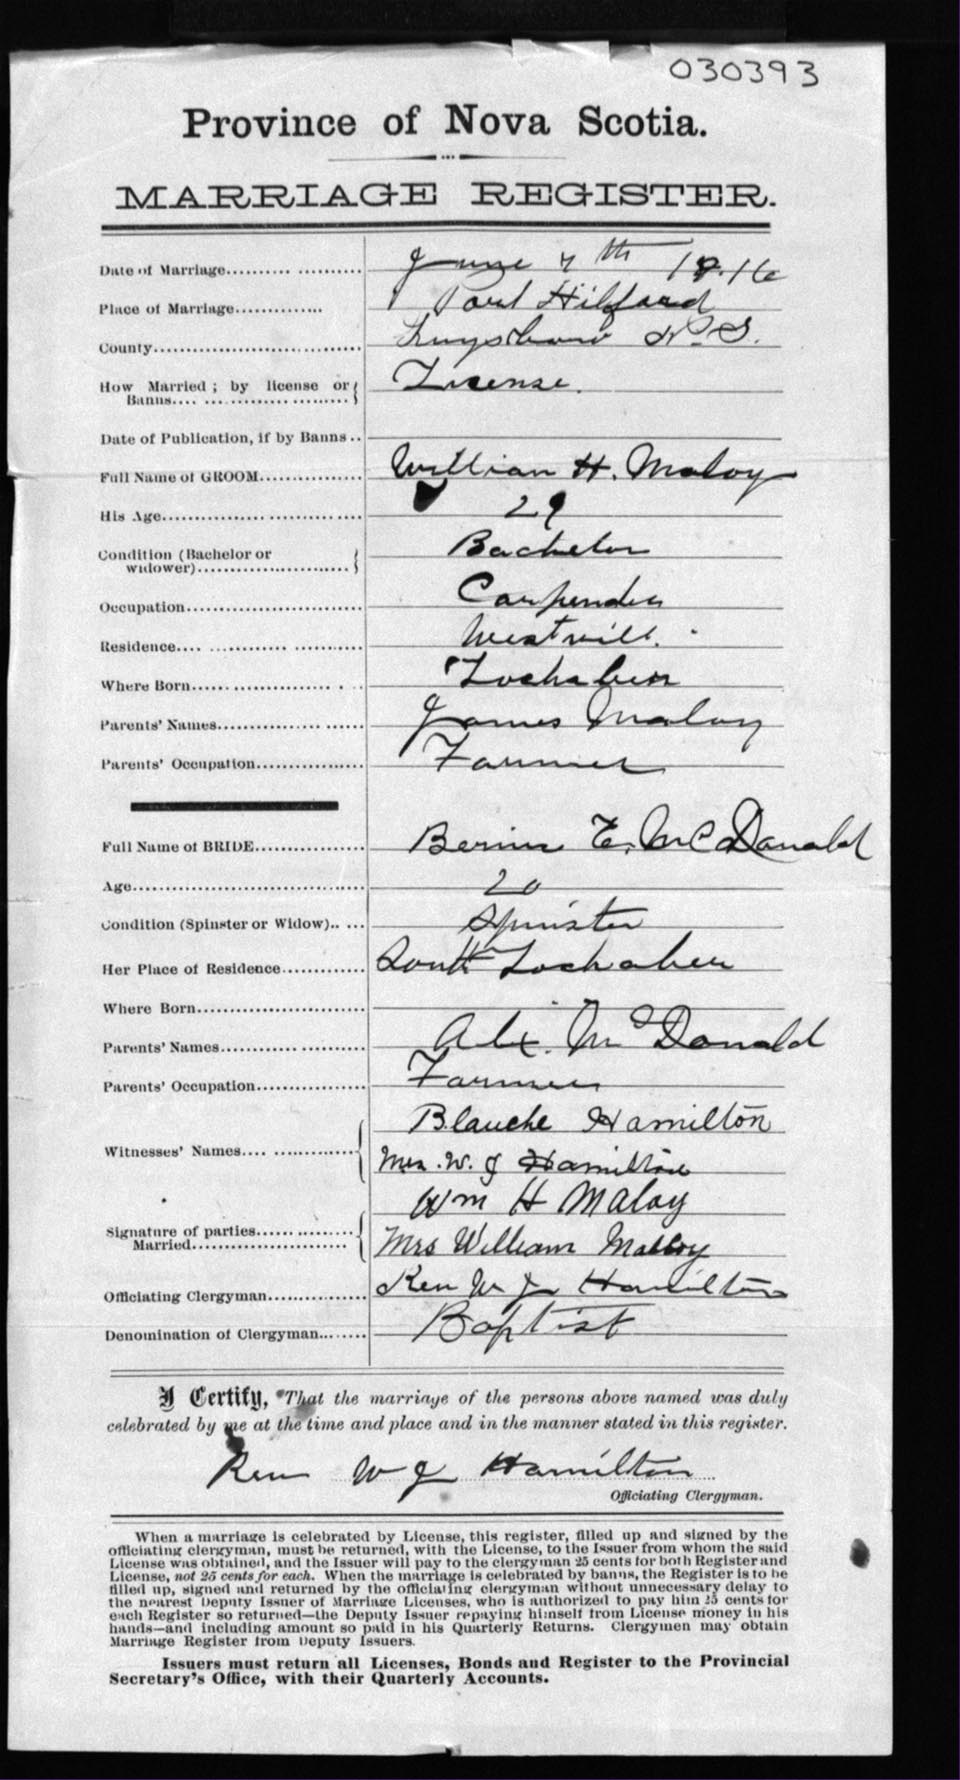 030393
Province of Nova Scotia.
MARRIAGE REGISTER.
Date of Marriage.......... June 7th 1916
Place of Marriage.......... Port Hilford
County.......... Guysboro N.S.
How Married; by license or Banns.......... License.
Date of Publication, if by Banns..
Full Name of GROOM.......... William H. Maloy
His Age.......... 29
Condition (Bachelor or widower).......... Bachelor
Occupation.......... Carpender
Residence.......... Westvill.
Where Born.......... Lochaber
Parents' Names.......... James Maloy
Parents' Occupation.......... Farmer
Full Name of BRIDE.......... E. McDonald
Age.......... 20
Condition (Spinster or Widow)..... Spinster
Her Place of Residence.......... South Lochaber
Where Born..........
Parents' Names.......... Alex. McDonald
Parents' Occupation.......... Farmer
Witnesses' Names.......... Blanche Hamilton
Mrs. W. J Hamilton
Signature of parties Married.......... Wm H Maloy
Mrs William Malloy
Officiating Clergyman.......... Rev W J Hamilton
Denomination of Clergyman....... Baptist
I Certify, That the marriage of the persons above named was duly
celebrated by me at the time and place and in the manner stated in this register.
Rev W J Hamilton
Officiating Clergyman.
When a marriage is celebrated by License, this register, filled up and signed by the
officiating clergyman, must be returned, with the License, to the Issuer from whom the said
License was obtained, and the Issuer will pay to the clergyman 25 cents for both Register and
License, not 25 cents for each. When the marriage is celebrated by banns, the Register is to be
filled up, signed and returned by the officiating clergyman without unnecessary delay to
the nearest Deputy Issuer of Marriage Licenses, who is authorized to pay him 25 cents for
each Register so returned—the Deputy Issuer repaying himself from License money in his
hands—and including amount so paid in his Quarterly Returns. Clergymen may obtain
Marriage Register from Deputy Issuers.
Issuers must return all Licenses, Bonds and Register to the Provincial
Secretary's Office, with their Quarterly Accounts.